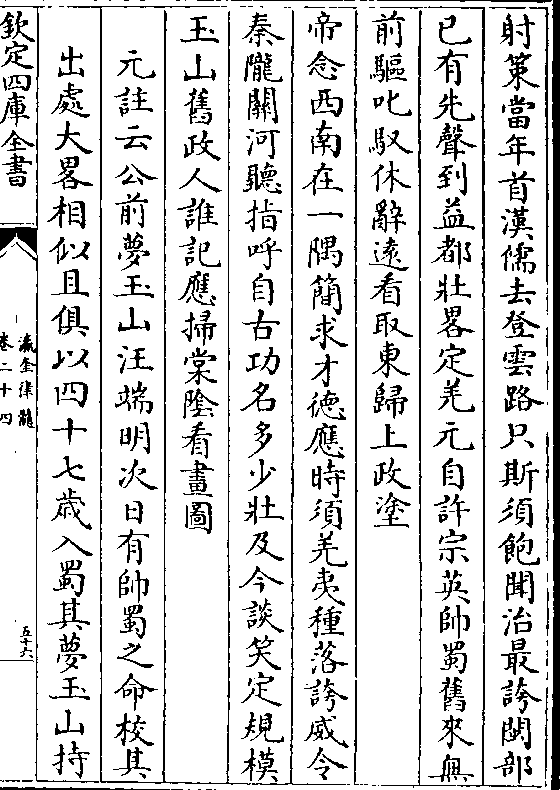 射策當年首漢儒去登雲路只斯須飽聞治最誇閩部
已有先聲到益都壯畧定羌元自許宗英帥蜀舊來無
前驅叱馭休辭遠看取東歸上政塗
帝念西南在一隅簡求才德應時須羌夷種落誇威令
秦隴關河聽指呼自古功名多少壯及今談笑定規模
玉山舊政人誰記應掃棠隂看畫圖
元註云公前夢玉山汪端明次日有帥蜀之命校其
出處大畧相似且俱以四十七歳入蜀其夢玉山持
欽定四庫全書
瀛奎律髓
卷二十四
五十六